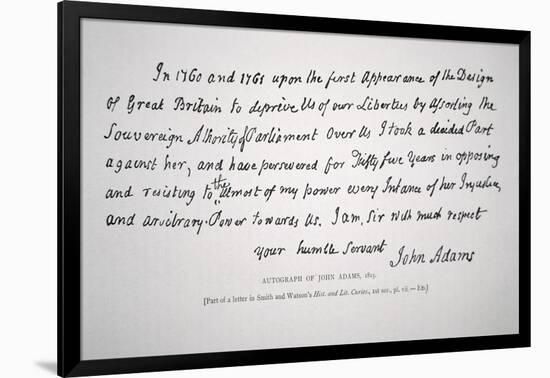 In 1760 and 1761 upon the first Appearance of the Design
of Great Britain to deprive Us of our Liberties by Asserting the
Souvereign Athority of Parliament Over Us I took a decided Part
against her, and have persevered for Fifty five Years in opposing
and resisting to the Utmost of my power every Instance of her Injustice,
and arbitrary Power towards Us. I am, Sir with much respect
your humble Servant
John Adams
AUTOGRAPH OF JOHN ADAMS, 1815.
[Part of a letter in Smith and Watson's Hist. and Lit. Curios., 1st ser., pl. vii. — ED.]